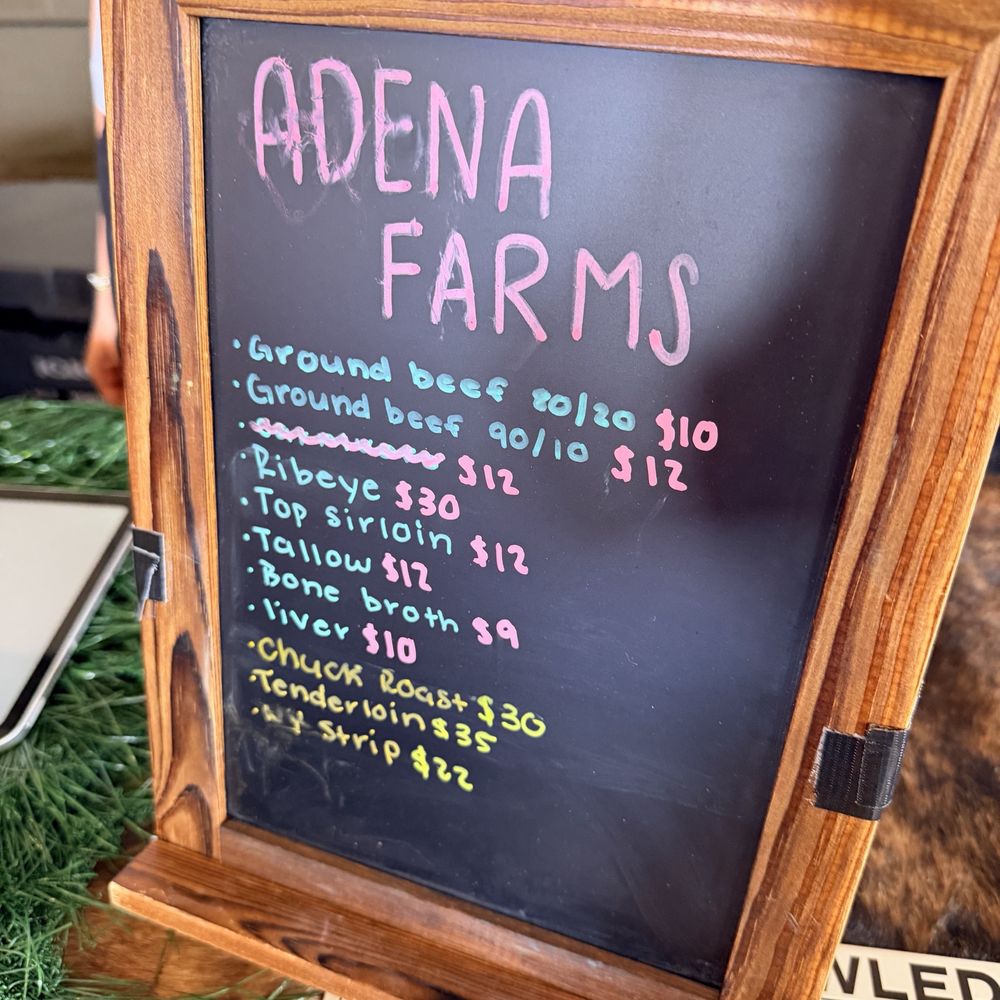 ADENA
FARMS
· Ground beef 80/20 $10
· Ground beef 90/10 $12
· $12
· Ribeye $30
· Top sirloin $12
· Tallow $12
· Bone broth $9
· liver $10
· Chuck Roast $30
· Tenderloin $35
· NY Strip $22
WLED